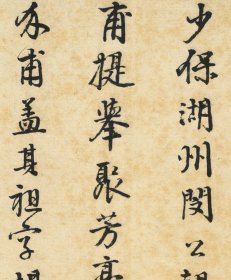 少保湖州閔公朝
甫提舉聚芳亭
甫蓋其祖字